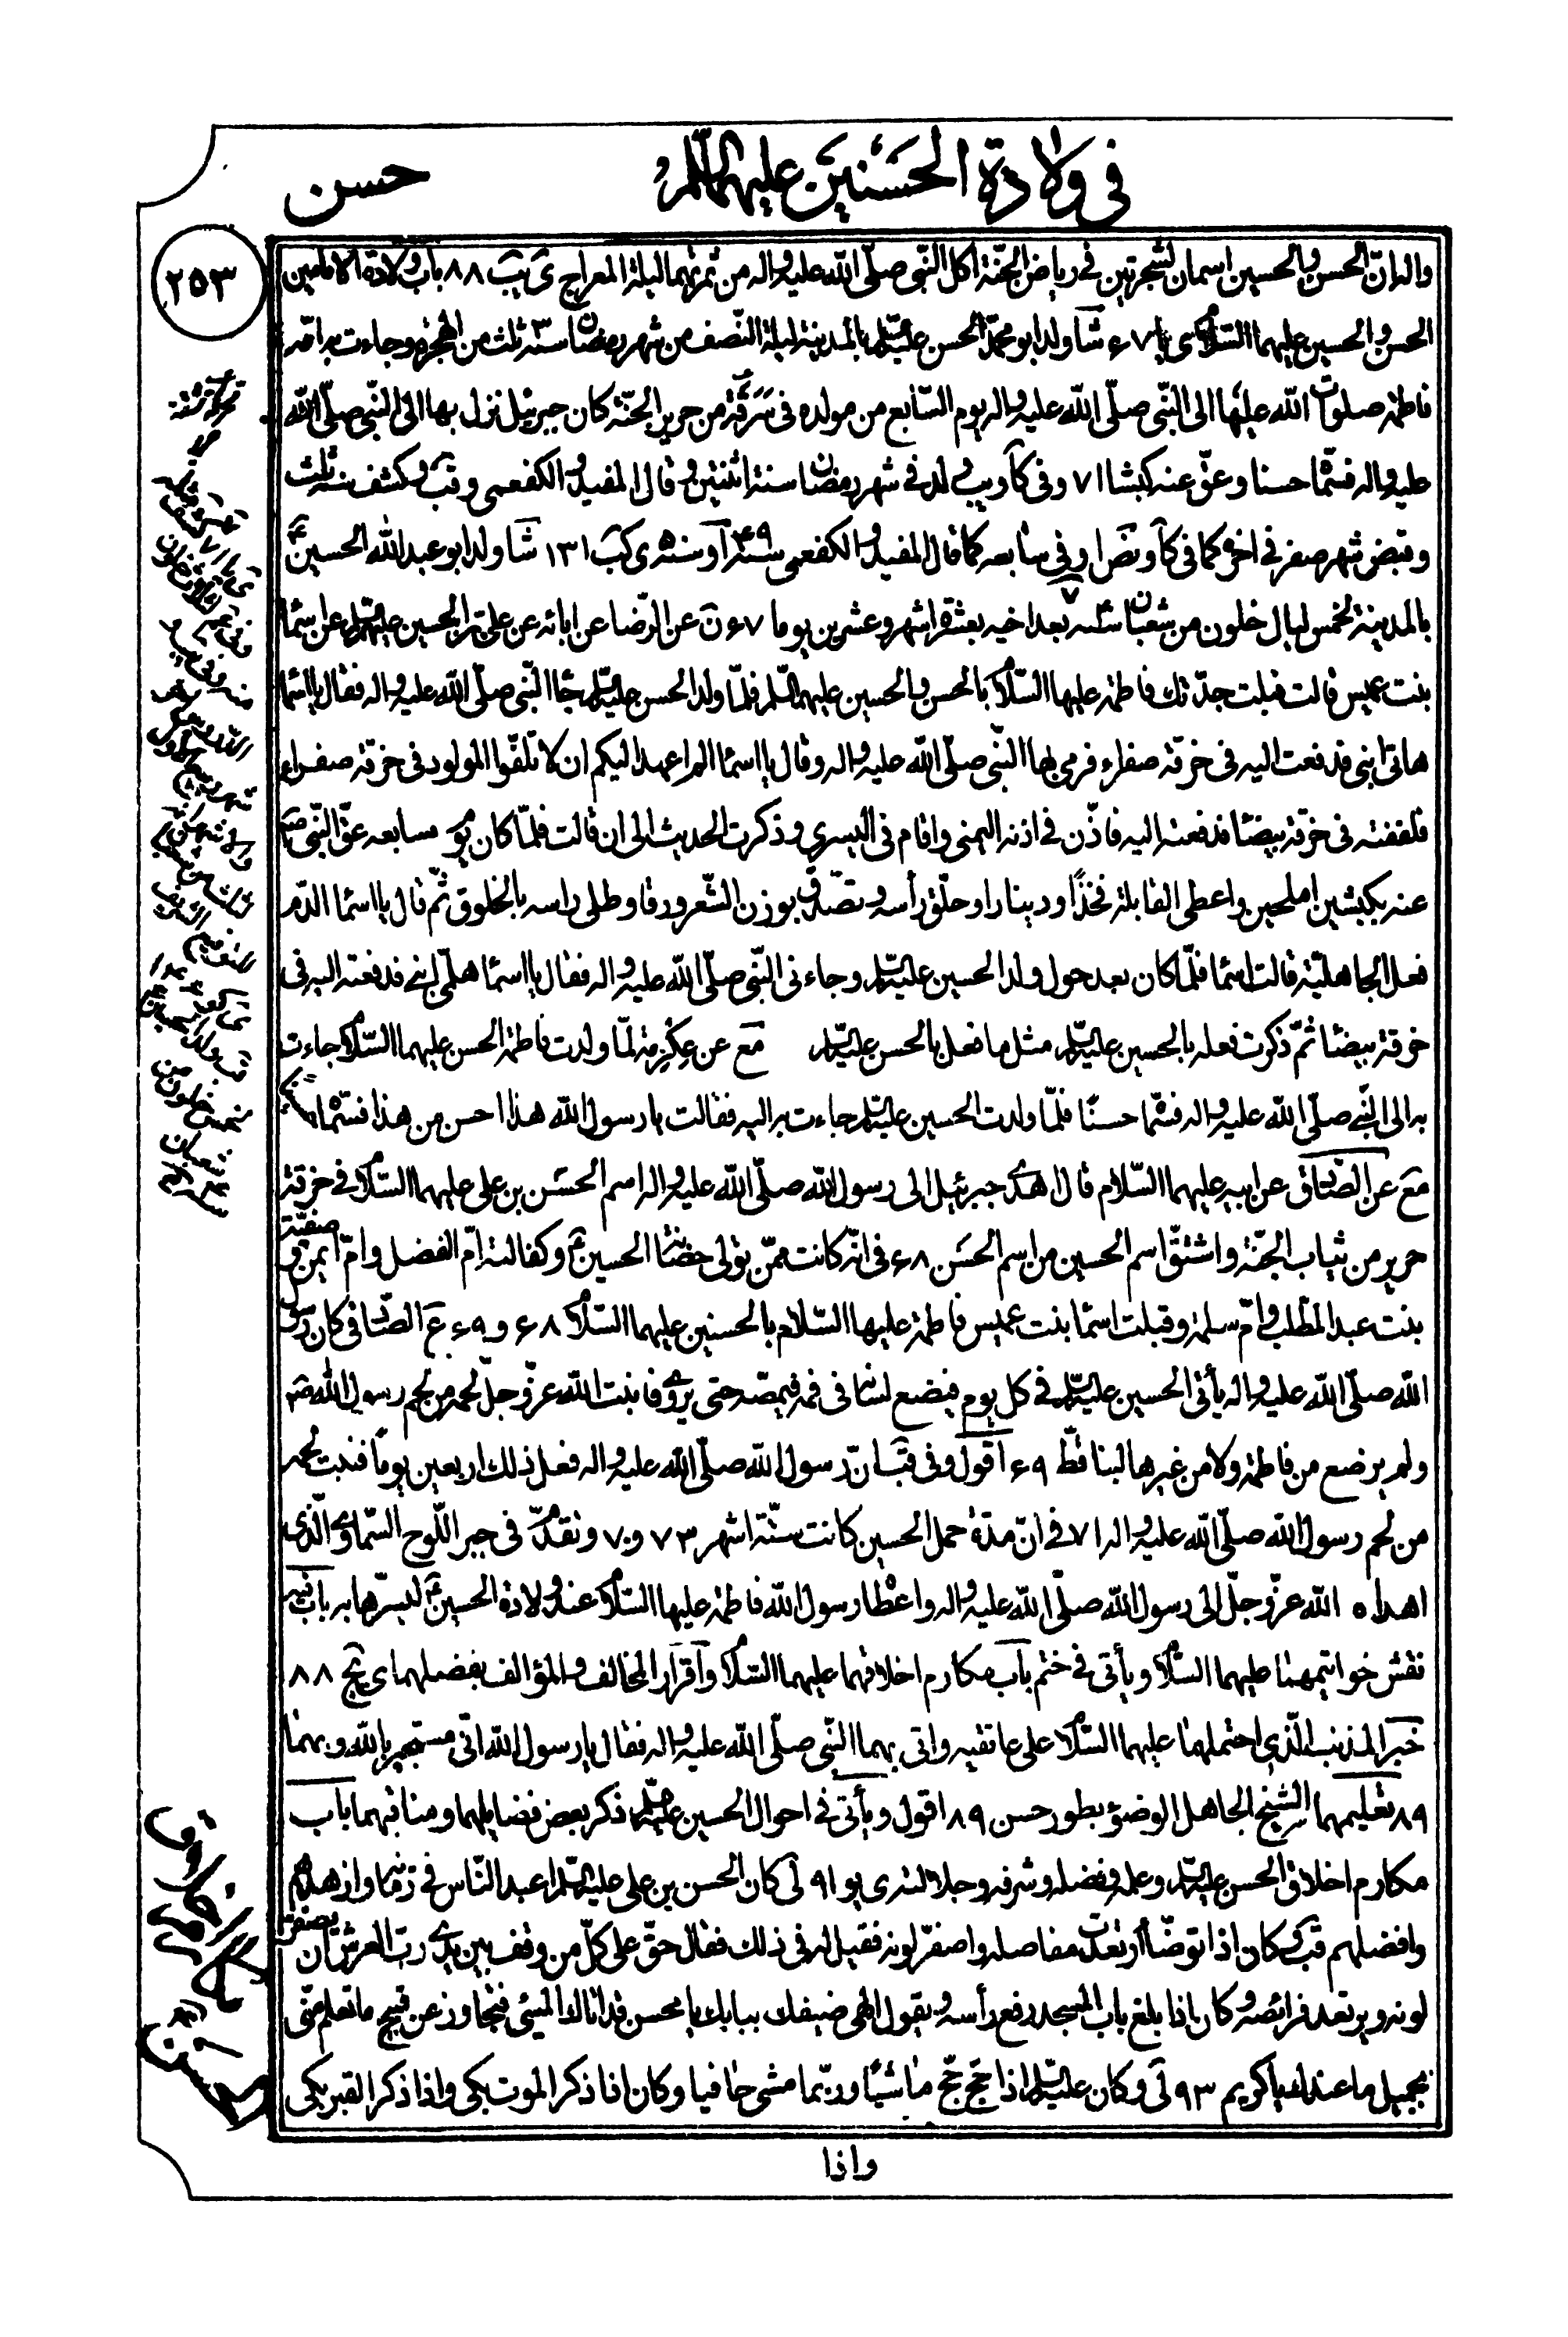 في ولادة الحسنين عليهما السّلم
حسن
٢٥٣
واله انّ الحسن والحسين اسمان لشجرتين في رياض الجنّة اكل النّبي صلّى اللّه عليه واله من ثمرتهما ليلة المعراج ى يب ٨٨ باب ولادة الامامين
الحسن والحسين عليهما السّلام ى يا ٦٧ شا ولد ابو محمّد الحسن عليه السّلم بالمدينة ليلة النّصف من شهر رمضان سنة ٣ ثلث من الهجرة وجاءت به امّه
فاطمة صلوات اللّه عليها الى النّبي صلّى اللّه عليه واله يوم السّابع من مولده فى سَرَقة من حرير الجنّة كان جبرئيل نزل بها الى النّبي صلّى اللّه
عليه واله فسمّاه حسنا وعقّ عنه كبشا ٧١ وفى كا ويب ولد في شهر رمضان سنة اثنتين وقال المفيد والكفعمى وقب وكشف سنة ثلث
وقبض شهر صفر في اخره كما فى كا ونص او في سابعه كما قال المفيد والكفعمى سنة ٤٩ او سنة ٥٠ ى كب ١٣١ شا ولد ابو عبد اللّه الحسين ع
بالمدينة لخمس ليال خلون من شعبان سنة ٤ بعد اخيه بعشرة اشهر وعشرين يوما ٦٧ ن عن الرّضا عن ابائه عن علىّ بن الحسين عليهم السّلم عن اسماء
بنت عميس قالت قبلت جدّتك فاطمة عليها السّلام بالحسن والحسين عليهما السّلم فلمّا ولد الحسن عليه السّلم جاء النّبي صلّى اللّه عليه واله فقال يا اسماء
هاتى ابنى فدفعته اليه فى خرقة صفراء فرمى بها النّبي صلّى اللّه عليه واله وقال يا اسماء الم اعهد اليكم ان لا تلفّوا المولود فى خرقة صفراء
فلففته فى خرقة بيضاء فدفعته اليه فاذّن في اذنه اليمنى واقام فى اليسرى وذكرت الحديث الى ان قالت فلمّا كان يوم سابعه عقّ النّبي ص
عنه بكبشين املحين واعطى القابلة فخذًا ودينارا وحلق رأسه وتصدّق بوزن الشّعر ورقا وطلى راسه بالخلوق ثمّ قال يا اسماء الدّم
فعل الجاهليّة قالت اسماء فلمّا كان بعد حول ولد الحسين عليه السّلم وجاءنى النّبي صلّى اللّه عليه واله فقال يا اسماء هلمّى ابني فدفعته اليه فى
خرقة بيضاء ثمّ ذكرت فعله بالحسين عليه السّلم مثل ما فعل بالحسن عليه السّلم مع عن عِكْرِمة لمّا ولدت فاطمة الحسن عليهما السّلام جاءت
به الى النّبي صلّى اللّه عليه واله فسمّاه حسنًا فلمّا ولدت الحسين عليه السّلم جاءت به اليه فقالت يا رسول اللّه هذا احسن من هذا فسمّاه حسينا
مع عن الصّادق عن ابيه عليهما السّلام قال اهدى جبرئيل الى رسول اللّه صلّى اللّه عليه واله اسم الحسن بن على عليهما السّلام في خرقة
حرير من ثياب الجنّة واشتقّ اسم الحسين من اسم الحسَن ٦٨ فى انّه كانت ممّن تولى حضانة الحسين ع وكفالته امّ الفضل وامّ ايمن وصفيّة
بنت عبد المطّلب وامّ سلمة وقبلت اسماء بنت عميس فاطمة عليها السّلام بالحسنين عليهما السّلام ٦٨ و ٦٩ ع الصّادق كان رسول
اللّه صلّى اللّه عليه واله يأتى الحسين عليه السّلم في كل يوم فيضع لسانه فى فمه فيمصّه حتى يروى فانبت اللّه عزّ وجلّ لحمه من لحم رسول اللّه ص
ولم يرضع من فاطمة ولا من غيرها لبنا قطّ ٦٩ اقول وفى قب انّ رسول اللّه صلّى اللّه عليه واله فعل ذلك اربعين يوماً فنبت لحمه
من لحم رسول اللّه صلّى اللّه عليه واله ٧١ في انّ مدّة حمل الحسين كانت ستّة اشهر ٧٣ و ٧٠ وتقدّم فى جبر اللّوح السّماوي الّذى
اهداه اللّه عزّ وجلّ الى رسول اللّه صلّى اللّه عليه واله واعطاه رسول اللّه فاطمة عليها السّلام عند ولادة الحسين ع ليسرّها به باب فيه
نقش خواتيمهما عليهما السّلام ويأتى في ختم باب مكارم اخلاقهما عليهما السّلام واقرار المخالف والمؤالف بفضلهما ى يج ٨٨
خبر المذنب الّذى احتملهما عليهما السّلام على عاتقيه واتى بهما النّبي صلّى اللّه عليه واله فقال يا رسول اللّه انّى مستجير باللّه وبهما
٨٩ تعليمهما الشيخ الجاهل الوضوء بطور حسن ٨٩ اقول ويأتى في احوال الحسين عليه السّلم ذكر بعض فضايلهما ومناقبهما باب
مكارم اخلاق الحسن عليه السّلم وعلمه وفضله وشرفه وجلالته ى يو ٩١ لى كان الحسن بن على عليه السّلم اعبد النّاس في زمانه وازهدهم
وافضلهم قب وكان اذا توضّأ ارتعدت مفاصله واصفرّ لونه فقيل له فى ذلك فقال حقّ على كلّ من وقف بين يدي ربّ العرش ان يصفرّ
لونه وترتعد فرائصه وكان اذا بلغ باب المسجد رفع رأسه ويقول الهى ضيفك ببابك يا محسن قد اتاك المسيئى فتجاوز عن قبيح ما تعلم منّى
بجميل ما عندك يا كريم ٩٣ لى وكان عليه السّلم اذا حجّ حجّ ماشيًا وربّما مشى حافيا وكان اذا ذكر الموت بكى واذا ذكر القبر بكى
واذا